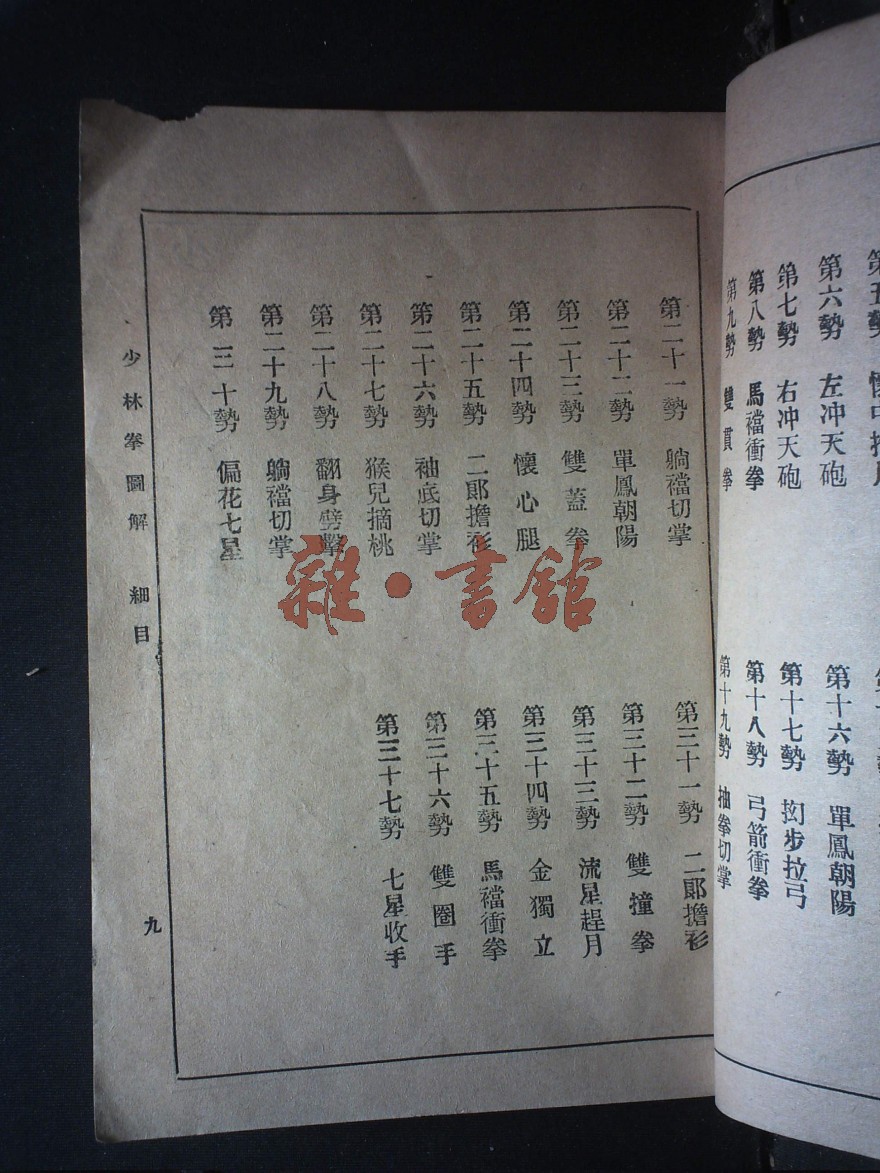 第五勢
第六勢 左冲天砲
第七勢 右冲天砲
第八勢 馬襠衝拳
第九勢 雙貫拳
第十六勢 單鳳朝陽
第十七勢 抝步拉弓
第十八勢 弓箭衝拳
第十九勢 抽拳切掌
第二十一勢 躺襠切掌
第二十二勢 單鳳朝陽
第二十三勢 雙蓋拳
第二十四勢 懷心腿
第二十五勢 二郞擔衫
第二十六勢 袖底切掌
第二十七勢 猴兒摘桃
第二十八勢 翻身劈擊
第二十九勢 躺襠切掌
第三十勢 偏花七星
第三十一勢 二郞擔衫
第三十二勢 雙撞拳
第三十三勢 流星趕月
第三十四勢 金獨立
第三十五勢 馬襠衝拳
第三十六勢 雙圈手
第三十七勢 七星收手
少林拳圖解 細目
九
雜·書館